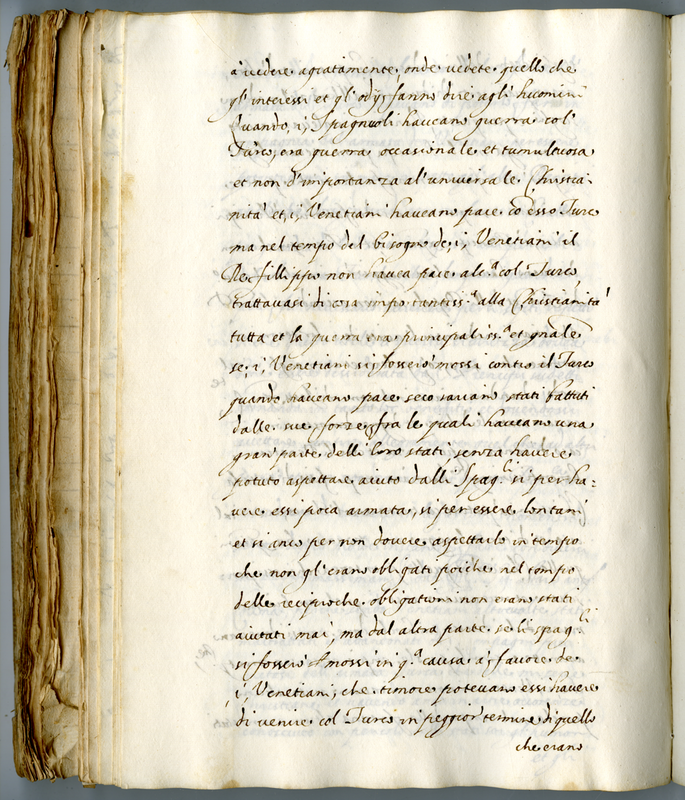 à vedere agiatamente, onde vedete quello che
gl'interessi et gl'odij fanno dire agli huomini
Quando, i, Spagnuoli haveano guerra col
Turco, era guerra occasionale et tumultuosa
et non d'importanza al'universale Christia-
nità et, i, Venetiani haveano pace cō esso Turco
ma nel tempo del bisogno de, i, Venetiani il
Re fillippo non havea pace alc.ª col Turco,
trattavasi di cosa importantiss.ª alla Christianità
tutta et la guerra era principaliss.ª et gn̄ale
se, i, Venetiani si fossero mossi contro il Turco
quando haveano pace seco sariano stati battuti
dalle sue forze fra le quali haveano una
gran parte delli loro stati, senza havere
potuto aspettare aiuto dalli Spag.li si per ha=
vere essi poca armata, si per essere lontani
et si anco per non dovere aspettarlo in tempo
che non gl'erano obligati poiche nel tempo
delle reciproche obligationi non erano stati
aiutati mai, ma dal altra parte se li spag.li
si fossero mossi in q.ª causa a favore de
i, Venetiani, che timore potevano essi havere
di venire col Turco in peggior termine di quello
che erano